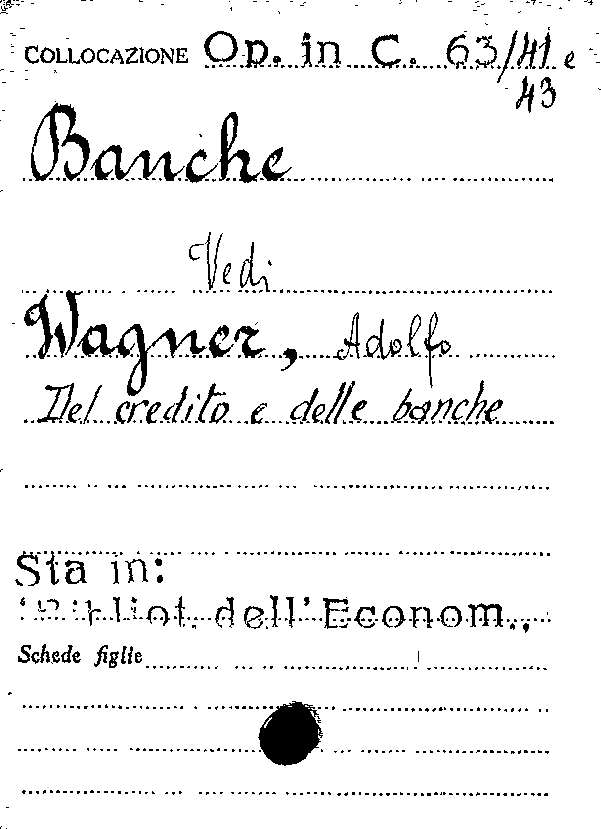 COLLOCAZIONE Op. in C. 63/41 e
43
Banche
Vedi
Wagner, Adolfo
Del credito e delle banche
Sta in:
"Bibliot. dell'Econom.,
Schede figlie